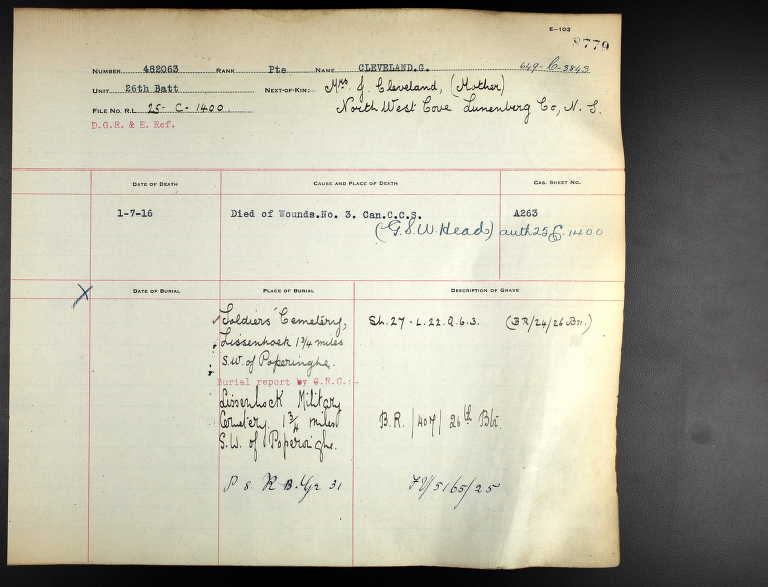 E-103
8779
NUMBER 482063 RANK Pte NAME CLEVELAND.G. 649-C-3843
UNIT 26th Batt NEXT-OF-KIN:- Mrs. J. Cleveland, (Mother)
FILE NO. R.L. 25-C-1400. North West Cove Lunenberg Co, N.S.
D.G.R. & E. Ref.
DATE OF DEATH CAUSE AND PLACE OF DEATH CAS. SHEET NO.
1-7-16 Died of Wounds.No. 3. Can.C.C.S. A263
(G.S.W. Head) auth 25-C-1400
X DATE OF BURIAL PLACE OF BURIAL DESCRIPTION OF GRAVE
Soldiers' Cemetery, Sh.27-L.22.Q.6.3. (BR/24/26 Bn.)
Lissenhoek 1 3/4 miles
S.W. of Poperinghe.
Burial report by G.R.C.:-
Lissenhock Military
Cemetery. 1 3/4 miles B.R. /407/ 26th Bn.
S.W. of Poperinghe.
P 8 R B. Gr 31